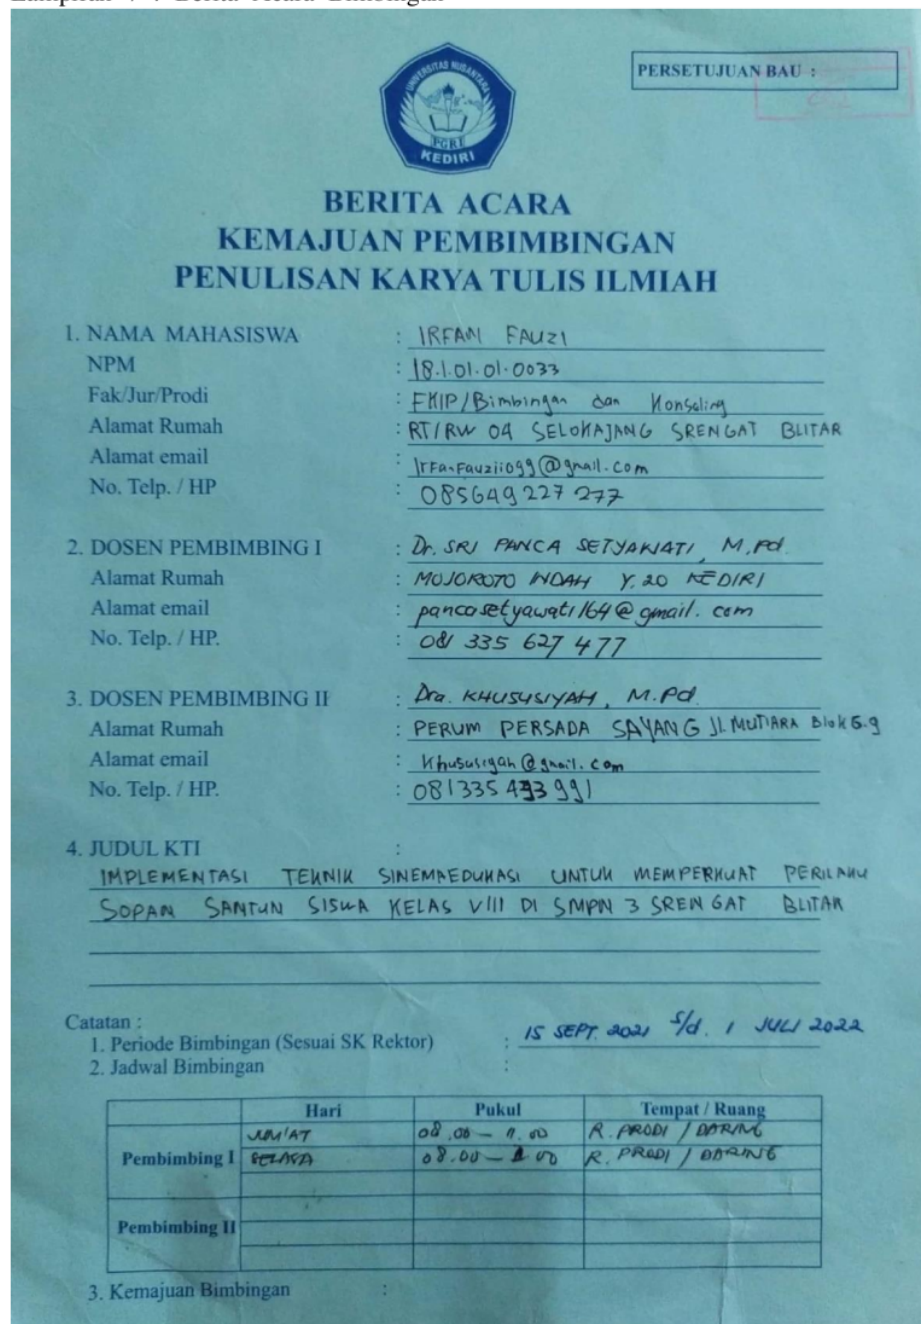 UNIVERSITAS NUSANTARA
PGRI
KEDIRI
PERSETUJUAN BAU :
BERITA ACARA
KEMAJUAN PEMBIMBINGAN
PENULISAN KARYA TULIS ILMIAH
1. NAMA MAHASISWA : IRFAN FAUZI
NPM : 18.1.01.01.0033
Fak/Jur/Prodi : FKIP/Bimbingan dan Konseling
Alamat Rumah : RT/RW 04 SELOKAJANG SRENGAT BLITAR
Alamat email : IrFanFauzii099@gmail.com
No. Telp. / HP : 085649227277
2. DOSEN PEMBIMBING I : Dr. SRI PANCA SETYAWATI, M.Pd.
Alamat Rumah : MOJOROTO INDAH Y.20 KEDIRI
Alamat email : pancasetyawati164@gmail.com
No. Telp. / HP. : 081 335 627 477
3. DOSEN PEMBIMBING II : Dra. KHUSUSIYAH, M.Pd.
Alamat Rumah : PERUM PERSADA SAYANG JL MUTIARA Blok G.9
Alamat email : Khususiyah@gmail.com
No. Telp. / HP. : 081335493991
4. JUDUL KTI :
IMPLEMENTASI TEKNIK SINEMAEDUKASI UNTUK MEMPERKUAT PERILAKU
SOPAN SANTUN SISWA KELAS VIII DI SMPN 3 SRENGAT BLITAR
Catatan :
1. Periode Bimbingan (Sesuai SK Rektor) : 15 SEPT. 2021 s/d. 1 JULI 2022
2. Jadwal Bimbingan :
Hari Pukul Tempat / Ruang
Pembimbing I
JUM'AT 08.00 – 11.00 R. PRODI / DARING
SELASA 08.00 – R. PRODI / DARING
Pembimbing II
3. Kemajuan Bimbingan :